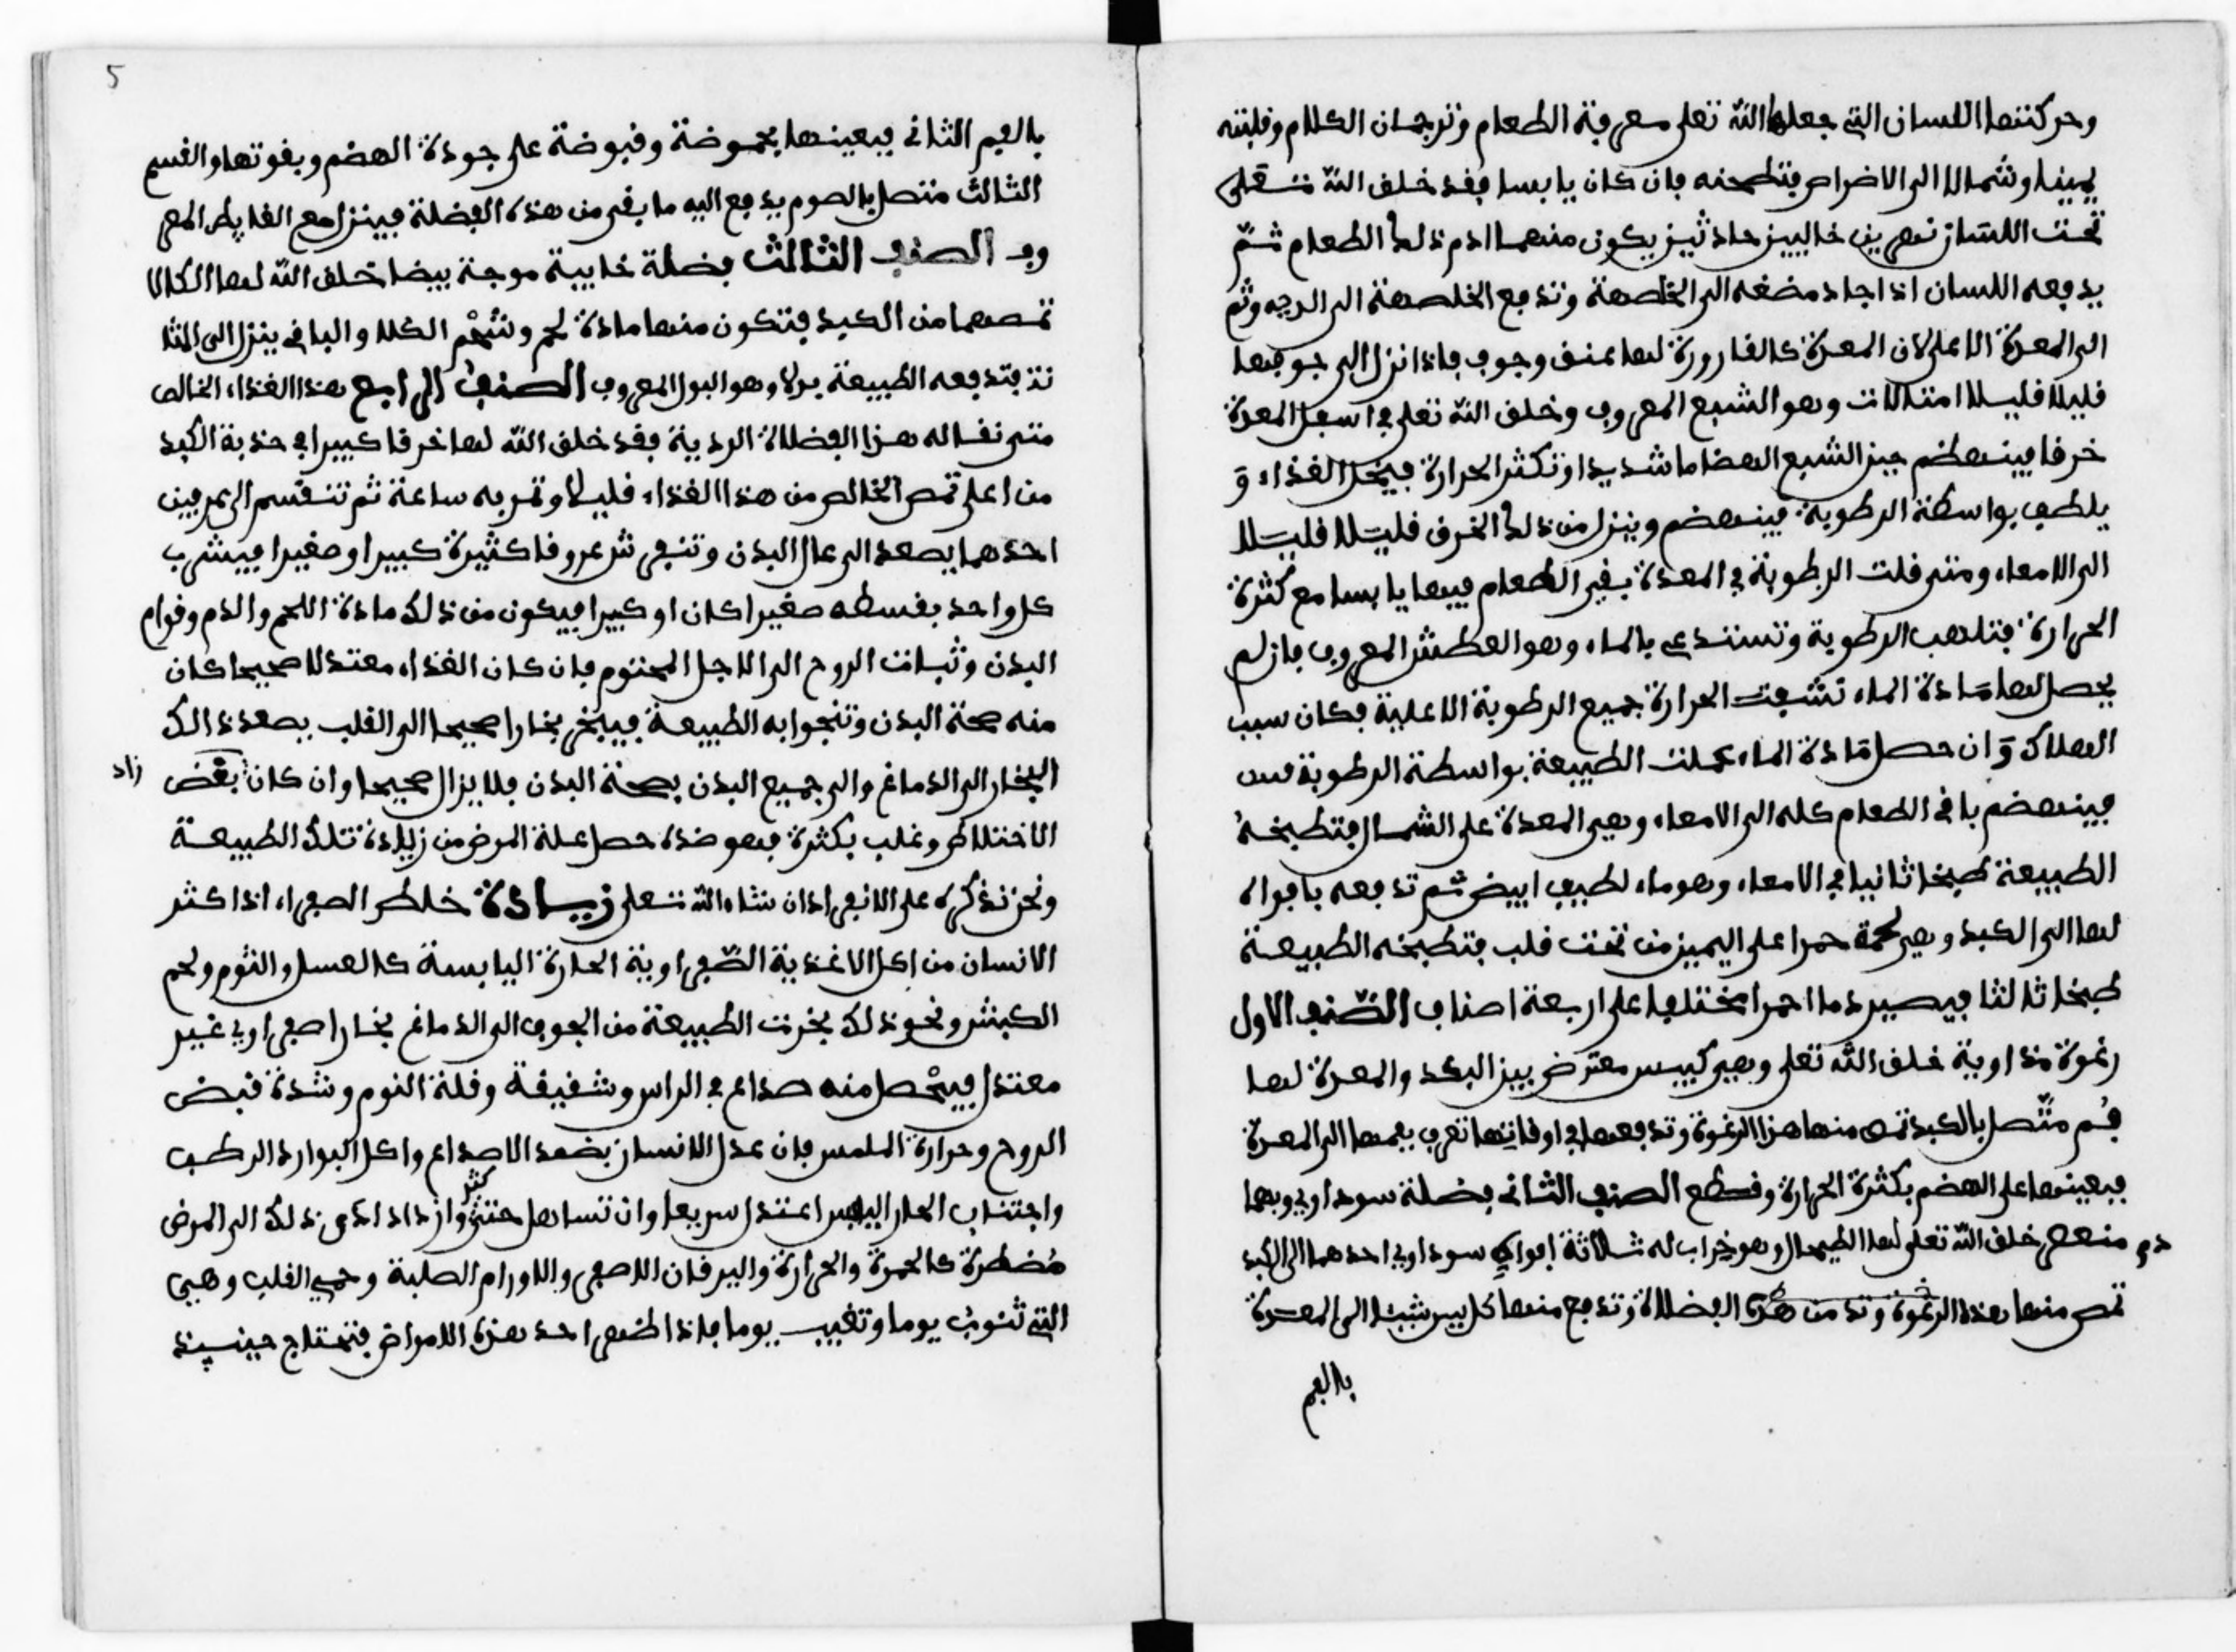 وحركتها اللسان التي جعلها الله تعلى معرفة الطعام وترجمان الكلام وقلبته
يمينا وشمالا الى الاضراس فتطحنه فان كان يابسا فقد خلق الله تعلى
تحت اللسان نهرين خاليين حاذثين يكون منهما ادم ذلك الطعام ثم
يدفعه اللسان اذا اجاد مضغه الى الخلصمة وتدفع الخلصمة الى المرى وثم
الى المعدة الاعلى لان المعدة كالقارورة لها عنق وجوف فاذا نزل الى جوفها
قليلا قليلا امتلات وهو الشبع المعروف وخلق الله تعلى في اسفل المعدة
خرقا فينهظم حين الشبع انهضاما شديدا وتكثر الحرارة فيتحل الغذاء و
يلطف بواسطة الرطوبة فينهضم وينزل من ذلك الخرق قليلا قليلا
الى الامعاء ومتى قلت الرطوبة في المعدة بقى الطعام فيها يابسا مع كثرة
الحرارة فتلهب الرطوبة وتستدعى بالماء وهو العطش المعروف فان لم
يحصل لها مادة الماء نشفت الحرارة جميع الرطوبة الاعلية فكان سبب
الهلاك وان حصل مادة الماء عملت الطبيعة بواسطة الرطوبة
فينهضم باقى الطعام كله الى الامعاء وهى المعدة على الشمال فتطبخه
الطبيعة طبخا ثانيا في الامعاء وهو ماء لطيف ابيض ثم تدفعه بافواه
لها الى الكبد وهى لحمة حمرا على اليمين من تحت قلب فتطبخه الطبيعة
طبخا ثالثا فيصير دما احمرا مختلفا على اربعة اصناف الصنف الاول
رغوة خلق الله تعلى وهى كيس معترض بين الكبد والمعدة لها
فم متصل بالكبد تمص منها هذا الرغوة وتدفعها في اوقاتها تعرف بفمها الى المعدة
فيعينها على الهضم بكثرة الحرارة وقطع الصنف الثانى فضلة سوداوى وبها
دم منعص خلق الله تعلى لها الطيحال وهو خراب له ثلاثة افواه سوداوى احدهما الى الكبد
تمص منها هذا الرغوة وتد من هذه الفضلاة وتدفع منها كل يس شيئا الى المعدة
بالفم
5
بالفم الثانى فيعينها بحموضة وقبوضة على جودة الهضم ويقوتها والقسم
الثالث متصل بالصوم يدفع اليه ما بقى من هذه الفضلة فينزل مع الغايط المعى
وف الصنف الثالث فضلة خايبة موجة بيضا خلق الله لها الكلالا
تمصها من الكبد فتكون منها مادة لحم وشحم الكلا والباقى ينزل الى المثا
نة فتدفعه الطبيعة بولا وهو البول المعروف الصنف الرابع هذا الغذاء الخالص
متى نقاله هذا الفضلاة الردية فقد خلق الله لها خرقا كبيرا في حذبة الكبد
من اعلى تمص الخالص من هذا الغذاء قليلا وتمر به ساعة ثم تنقسم الى عرقين
احدهما يصعد الى عال البدن وتنفرش عروقا كثيرة كبيرا وصغيرا فيشرب
كل واحد بقسطه صغيرا كان او كبيرا فيكون من ذلك مادة اللحم والدم وقوام
البدن وثبات الروح الى الاجل المحتوم فان كان الغذاء معتدلا صحيحا كان
منه صحة البدن وتنجوا به الطبيعة فيبخر بخارا صحيحا الى القلب يصعد ذالك
البخار الى الدماغ والى جميع البدن بصحة البدن فلا يزال صحيحا وان كان بعض زاد
الاختلاط وغلب بكثرة فهو ضده حصل علة المرض من زيادة تلك الطبيعة
ونحن نذكره على الانفراد ان شاء الله تعلى زيادة خلط الصفراء اذا كثر
الانسان من اكل الاغذية الصفراوية الحارة اليابسة كالعسل والثوم ولحم
الكبش ونحو ذلك بخرت الطبيعة من الجوف الى الدماغ بخارا صفراوي غير
معتدل فيحصل منه صداع في الراس وشقيقة وقلة النوم وشدة قبض
الروح وحرارة الملمس فان عدل الانسان بضمد الاصداع واكل البوارد الرطب
واجتناب الحار اليابس اعتدل سريعا وان تساهل حتى كثر وازداد ادى ذلك الى المرض
مضطرة كالحمرة والحرارة واليرقان الاصفر والاورام الصلبة وحمى القلب وهى
التي تنوب يوما وتغيب يوما فاذا ظهر احد هذه الامراض فتحتاج حينيذ